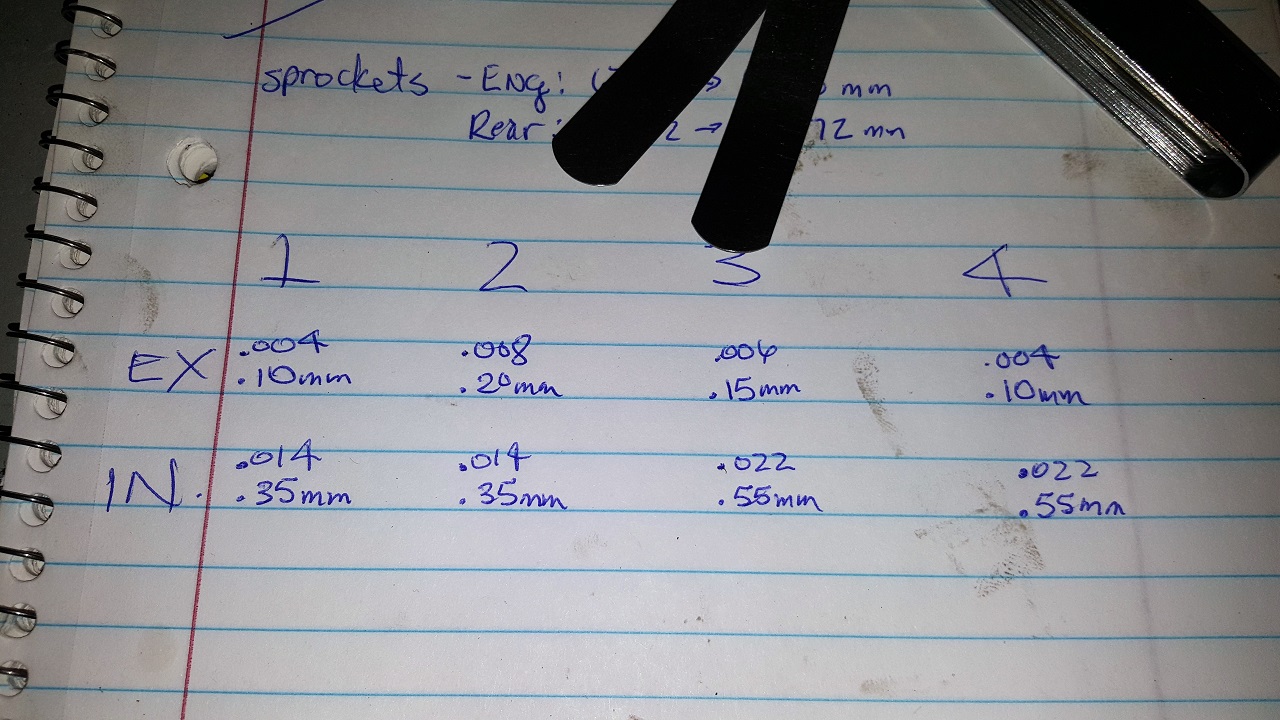 sprockets - ENG: mm
Rear: 2 → 72 mm
1 2 3 4
EX .004 .008 .006 .004
.10mm .20mm .15mm .10mm
IN. .014 .014 .022 .022
.35mm .35mm .55mm .55mm